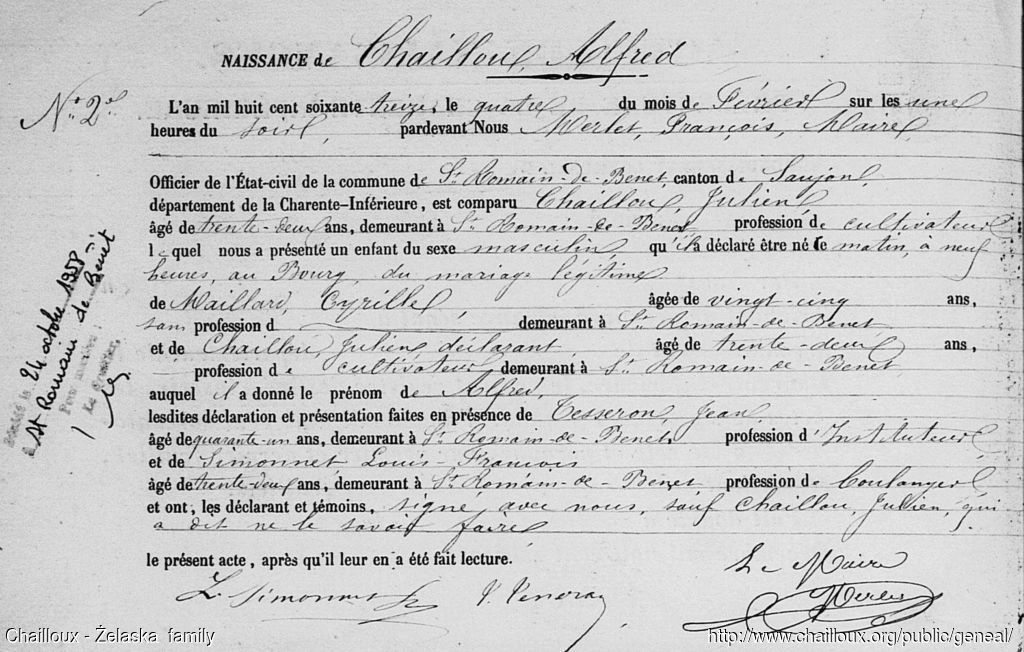 NAISSANCE de Chaillou, Alfred
N° 2
L'an mil huit cent soixante treize, le quatre du mois de Février sur les une
heures du soir, pardevant Nous Merlet, François, Maire
Officier de l'État-civil de la commune de St Romain-de-Benet, canton de Saujon,
département de la Charente-Inférieure, est comparu Chaillou, Julien
âgé de trente-deux ans, demeurant à St Romain-de-Benet profession de cultivateur
lequel nous a présenté un enfant du sexe masculin, qu'il a déclaré être né le matin, à neuf
heures, au Bourg, du mariage légitime
de Maillard, Cyrille, âgée de vingt-cinq ans,
sans profession d demeurant à St Romain-de-Benet
et de Chaillou, Julien, déclarant âgé de trente-deux ans,
profession de cultivateur demeurant à St Romain-de-Benet
auquel il a donné le prénom de Alfred,
lesdites déclaration et présentation faites en présence de Tesseron, Jean
âgé de quarante-un ans, demeurant à St Romain-de-Benet profession d'Instituteur
et de Simonnet Louis-François
âgé de trente-deux ans, demeurant à St Romain-de-Benet profession de boulanger
et ont, les déclarant et témoins, signé avec nous, sauf Chaillou, Julien, qui
a dit ne le savoir faire
le présent acte, après qu'il leur en a été fait lecture.
Le Maire
L. Simonnet
Merlet
24 octobre 1958
St Romain de Benêt
Chailloux - Żelaska family
http://www.chailloux.org/public/geneal/